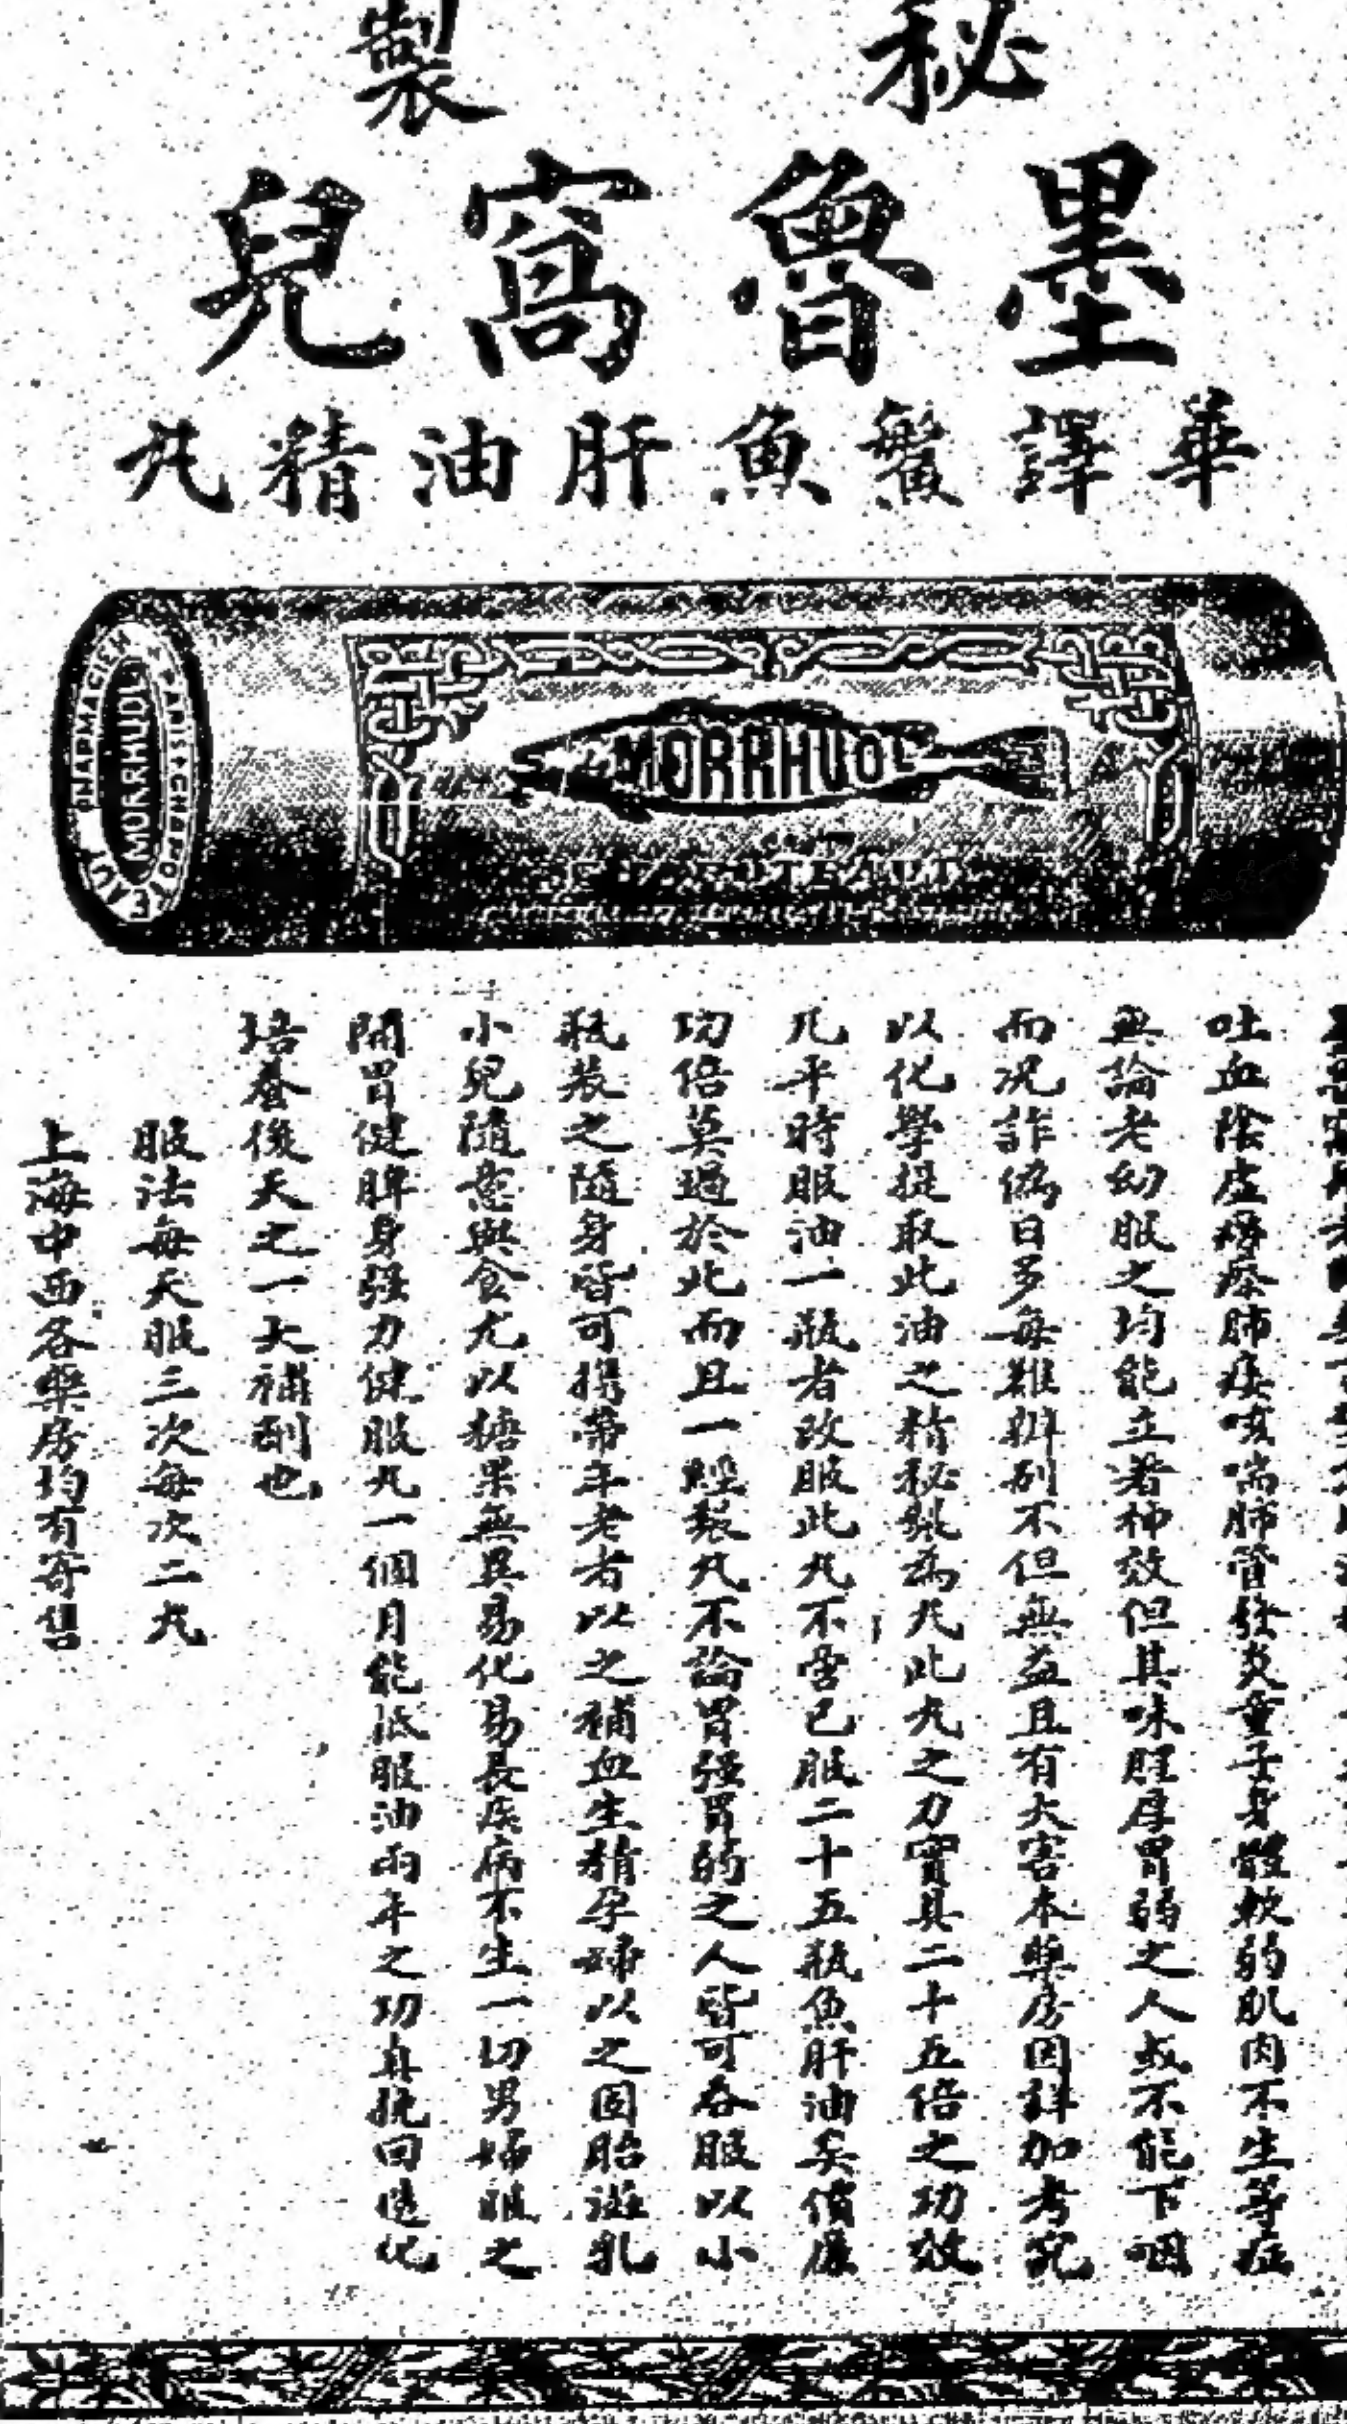 秘製
墨魯窩兒
華譯鱉魚肝油精丸
PHARMACIEN PARIS CHAPOTEAUT
MORRHUOL
MORRHUOL
吐血陰虛癆瘵肺痿咳喘肺管發炎童子身體軟弱肌肉不生等症
無論老幼服之均能立著神效但其味腥厚胃弱之人或不能下咽
而况詐偽日多每難辨别不但無益且有大害本藥房因詳加考究
以化學提取此油之精秘製為丸此丸之力實具二十五倍之功效
凡平時服油一瓶者改服此丸不啻已服二十五瓶魚肝油矣價廉
功倍莫過於此而且一經製丸不論胃强胃弱之人皆可吞服以小
瓶裝之隨身皆可攜帶年老者以之補血生精孕婦以之固胎滋乳
小兒隨意與食尤以糖果無異易化易長疾病不生一切男婦服之
開胃健脾身强力健服丸一個月能抵服油兩年之功真挽回造化
培養後天之一大補劑也
服法每天服三次每次二丸
上海中西各藥房均有寄售